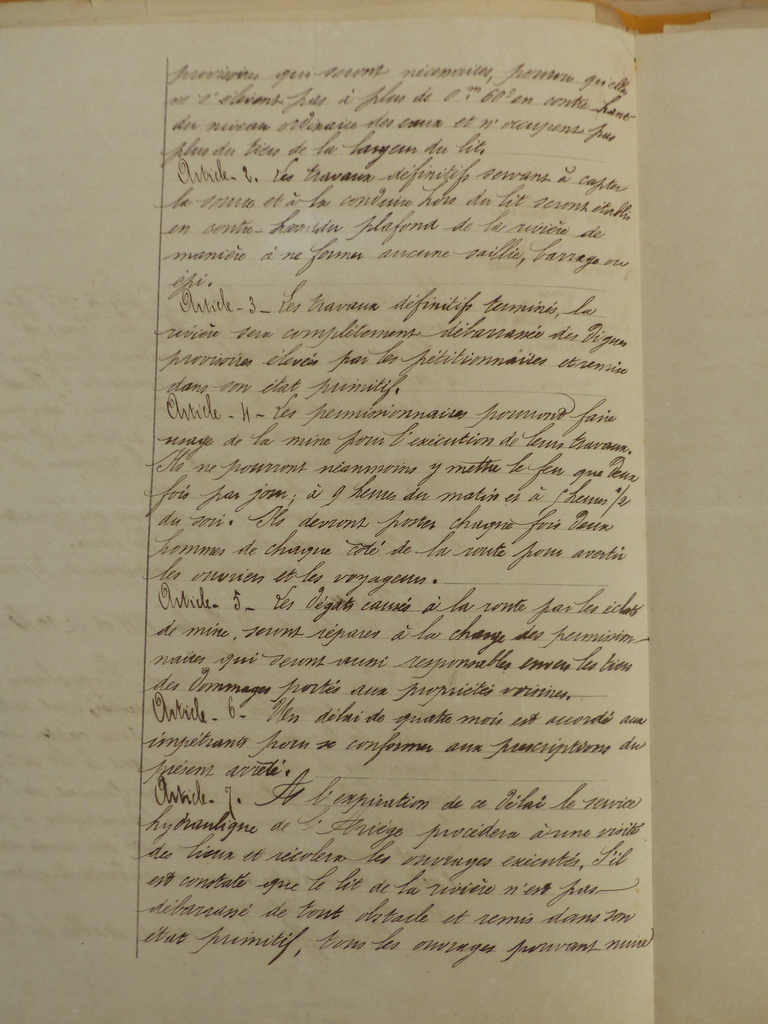 provisoires qui seront nécessaires, pourvu qu'elles
ne s'élèvent pas à plus de 0m 60c en contre-haut
du niveau ordinaire des eaux et n'occupent pas
plus du tiers de la largeur du lit.
Article - 2. Les travaux définitifs servant à capter
la source et à la conduire hors du lit seront établis
en contre-haut du plafond de la rivière de
manière à ne former aucune saillie, barrage ou
épi.
Article - 3 - Les travaux définitifs terminés, la
rivière sera complètement débarrassée des digues
provisoires élevés par les pétitionnaires et remise
dans son état primitif.
Article - 4 - Les permissionnaires pourront faire
usage de la mine pour l'exécution de leurs travaux.
Ils ne pourront néanmoins y mettre le feu que deux
fois par jour, à 9 heures du matin et à heures 1/2
du soir. Ils devront poster chaque fois deux
hommes de chaque côté de la route pour avertir
les ouvriers et les voyageurs.
Article - 5 - Les dégâts causés à la route par les éclats
de mine, seront réparés à la charge des permission-
naires qui seront aussi responsables envers les tiers
des dommages portés aux propriétés voisines.
Article - 6 - Un délai de quatre mois est accordé aux
impétrants pour se conformer aux prescriptions du
présent arrêté.
Article - 7. A l'expiration de ce délai le service
hydraulique de l'Ariège procédera à une visite
des lieux et récolera les ouvrages exécutés. S'il
est constaté que le lit de la rivière n'est pas
débarrassé de tout obstacle et remis dans son
état primitif, tous les ouvrages pouvant nuire